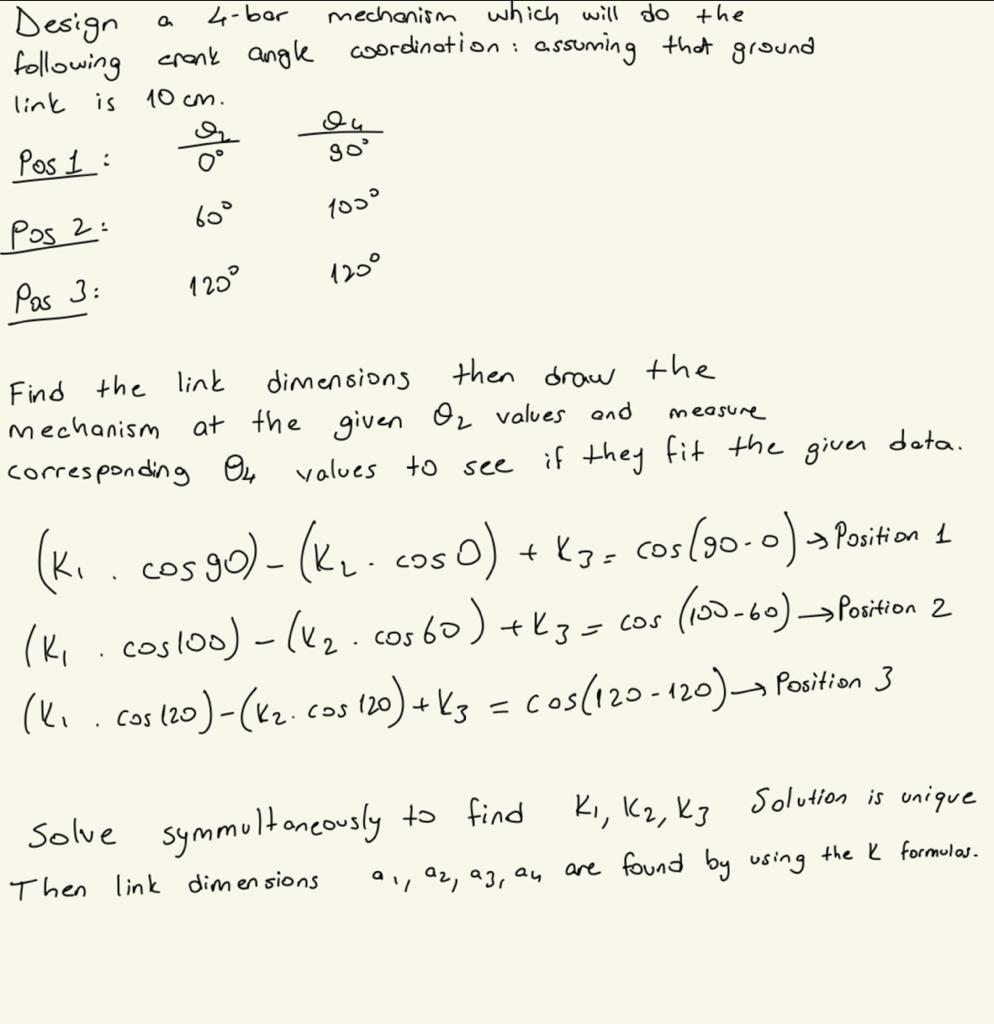 Design a 4-bar mechanism which will do the
following crank angle coordination : assuming that ground
link is 10 cm.
θ2 θ4
Pos 1 : 0° 90°
Pos 2 : 60° 100°
Pos 3 : 120° 120°
Find the link dimensions then draw the
mechanism at the given θ2 values and measure
corresponding θ4 values to see if they fit the given data.
(K1 . cos 90) - (K2 . cos 0) + K3 = cos (90-0) → Position 1
(K1 . cos 100) - (K2 . cos 60) + K3 = cos (100-60) → Position 2
(K1 . cos 120) - (K2 . cos 120) + K3 = cos (120-120) → Position 3
Solve symmultoneously to find K1, K2, K3 Solution is unique
Then link dimensions a1, a2, a3, a4 are found by using the K formulas.